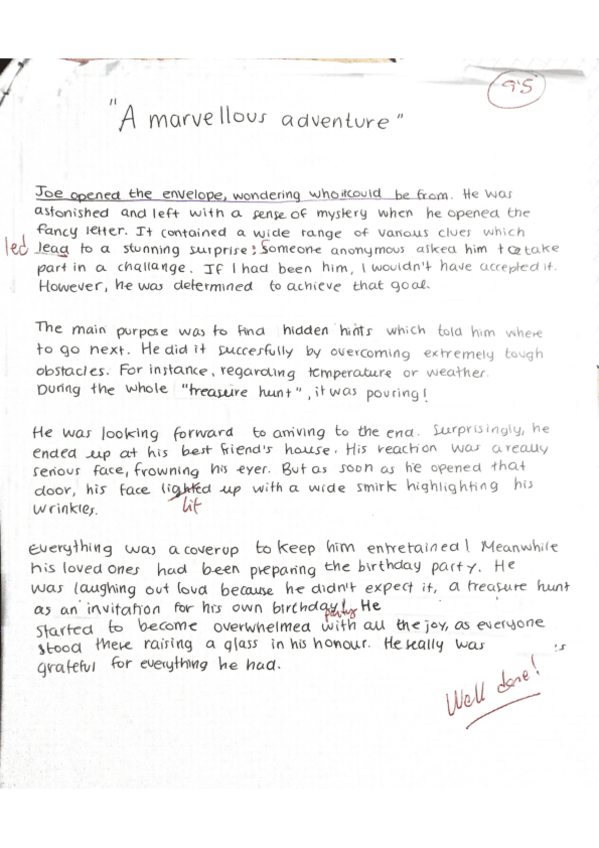 95
"A marvellous adventure"
Joe opened the envelope, wondering who it could be from. He was
astonished and left with a sense of mystery when he opened the
fancy letter. It contained a wide range of various clues which
led lead to a stunning surprise: Someone anonymous asked him to take
part in a challange. If I had been him, I wouldn't have accepted it.
However, he was determined to achieve that goal.
The main purpose was to find hidden hints which told him where
to go next. He did it succesfully by overcoming extremely tough
obstacles. For instance, regarding temperature or weather.
During the whole "treasure hunt", it was pouring!
He was looking forward to arriving to the end. Surprisingly, he
ended up at his best friend's house. His reaction was a really
serious face, frowning his eyer. But as soon as he opened that
door, his face lighted up with a wide smirk highlighting his
lit
wrinkles.
Everything was a coverup to keep him entretained! Meanwhile
his loved ones had been preparing the birthday party. He
was laughing out loud because he didn't expect it, a treasure hunt
as an invitation for his own birthday! He
party
started to become overwhelmed with all the joy, as everyone
stood there raising a glass in his honour. He really was is
grateful for everything he had.
Well done!